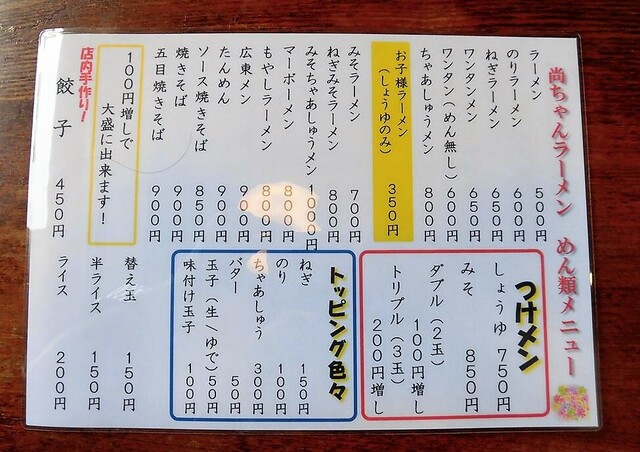 尚ちゃんラーメン めん類メニュー
ラーメン 500円
のりラーメン 600円
ねぎラーメン 650円
ワンタンメン 650円
ワンタン(めん無し) 600円
ちゃあしゅうメン 800円
お子様ラーメン
(しょうゆのみ) 350円
みそラーメン 700円
ねぎみそラーメン 800円
みそちゃあしゅうメン 1000円
マーボーメン 800円
もやしラーメン 800円
広東メン 900円
たんめん 900円
ソース焼きそば 850円
焼きそば 900円
五目焼きそば 900円
100円増しで
大盛に出来ます!
店内手作り!
餃子 450円
つけメン
しょうゆ 750円
みそ 850円
ダブル(2玉)
100円増し
トリプル(3玉)
200円増し
トッピング色々
ねぎ 150円
のり 100円
ちゃあしゅう 300円
バター 50円
玉子(生\ゆで) 50円
味付け玉子 100円
替え玉 150円
半ライス 150円
ライス 200円